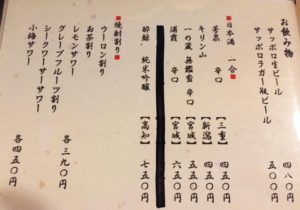 お飲み物
サッポロ生ビール 四八〇円
サッポロラガー瓶ビール 五〇〇円
■日本酒 一合■
芳泉 辛口 【三重】 四五〇円
キリン山 辛口 【新潟】 四五〇円
一の蔵 無鑑査 辛口 【宮城】 五五〇円
浦霞 辛口 【宮城】 六五〇円
酔鯨 純米吟醸 【高知】 七五〇円
■焼酎割り■
ウーロン割り
お茶割り
レモンサワー
グレープフルーツ割り 各三九〇円
シークワーサーサワー
小梅サワー 各四五〇円